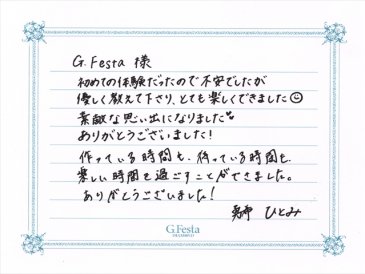 G.Festa 様
初めての体験だったので不安でしたが
優しく教えて下さり、とても楽しくできました☺
素敵な思い出になりました♥
ありがとうございました!
作っている時間も、待っている時間も
楽しい時間を過ごすことができました。
ありがとうございました!
ひとみ
G.Festa